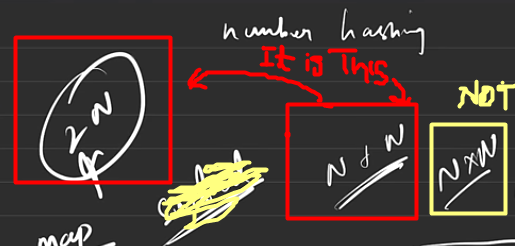 number hashing
It is This
NOT
2N
N + N
N × N
map